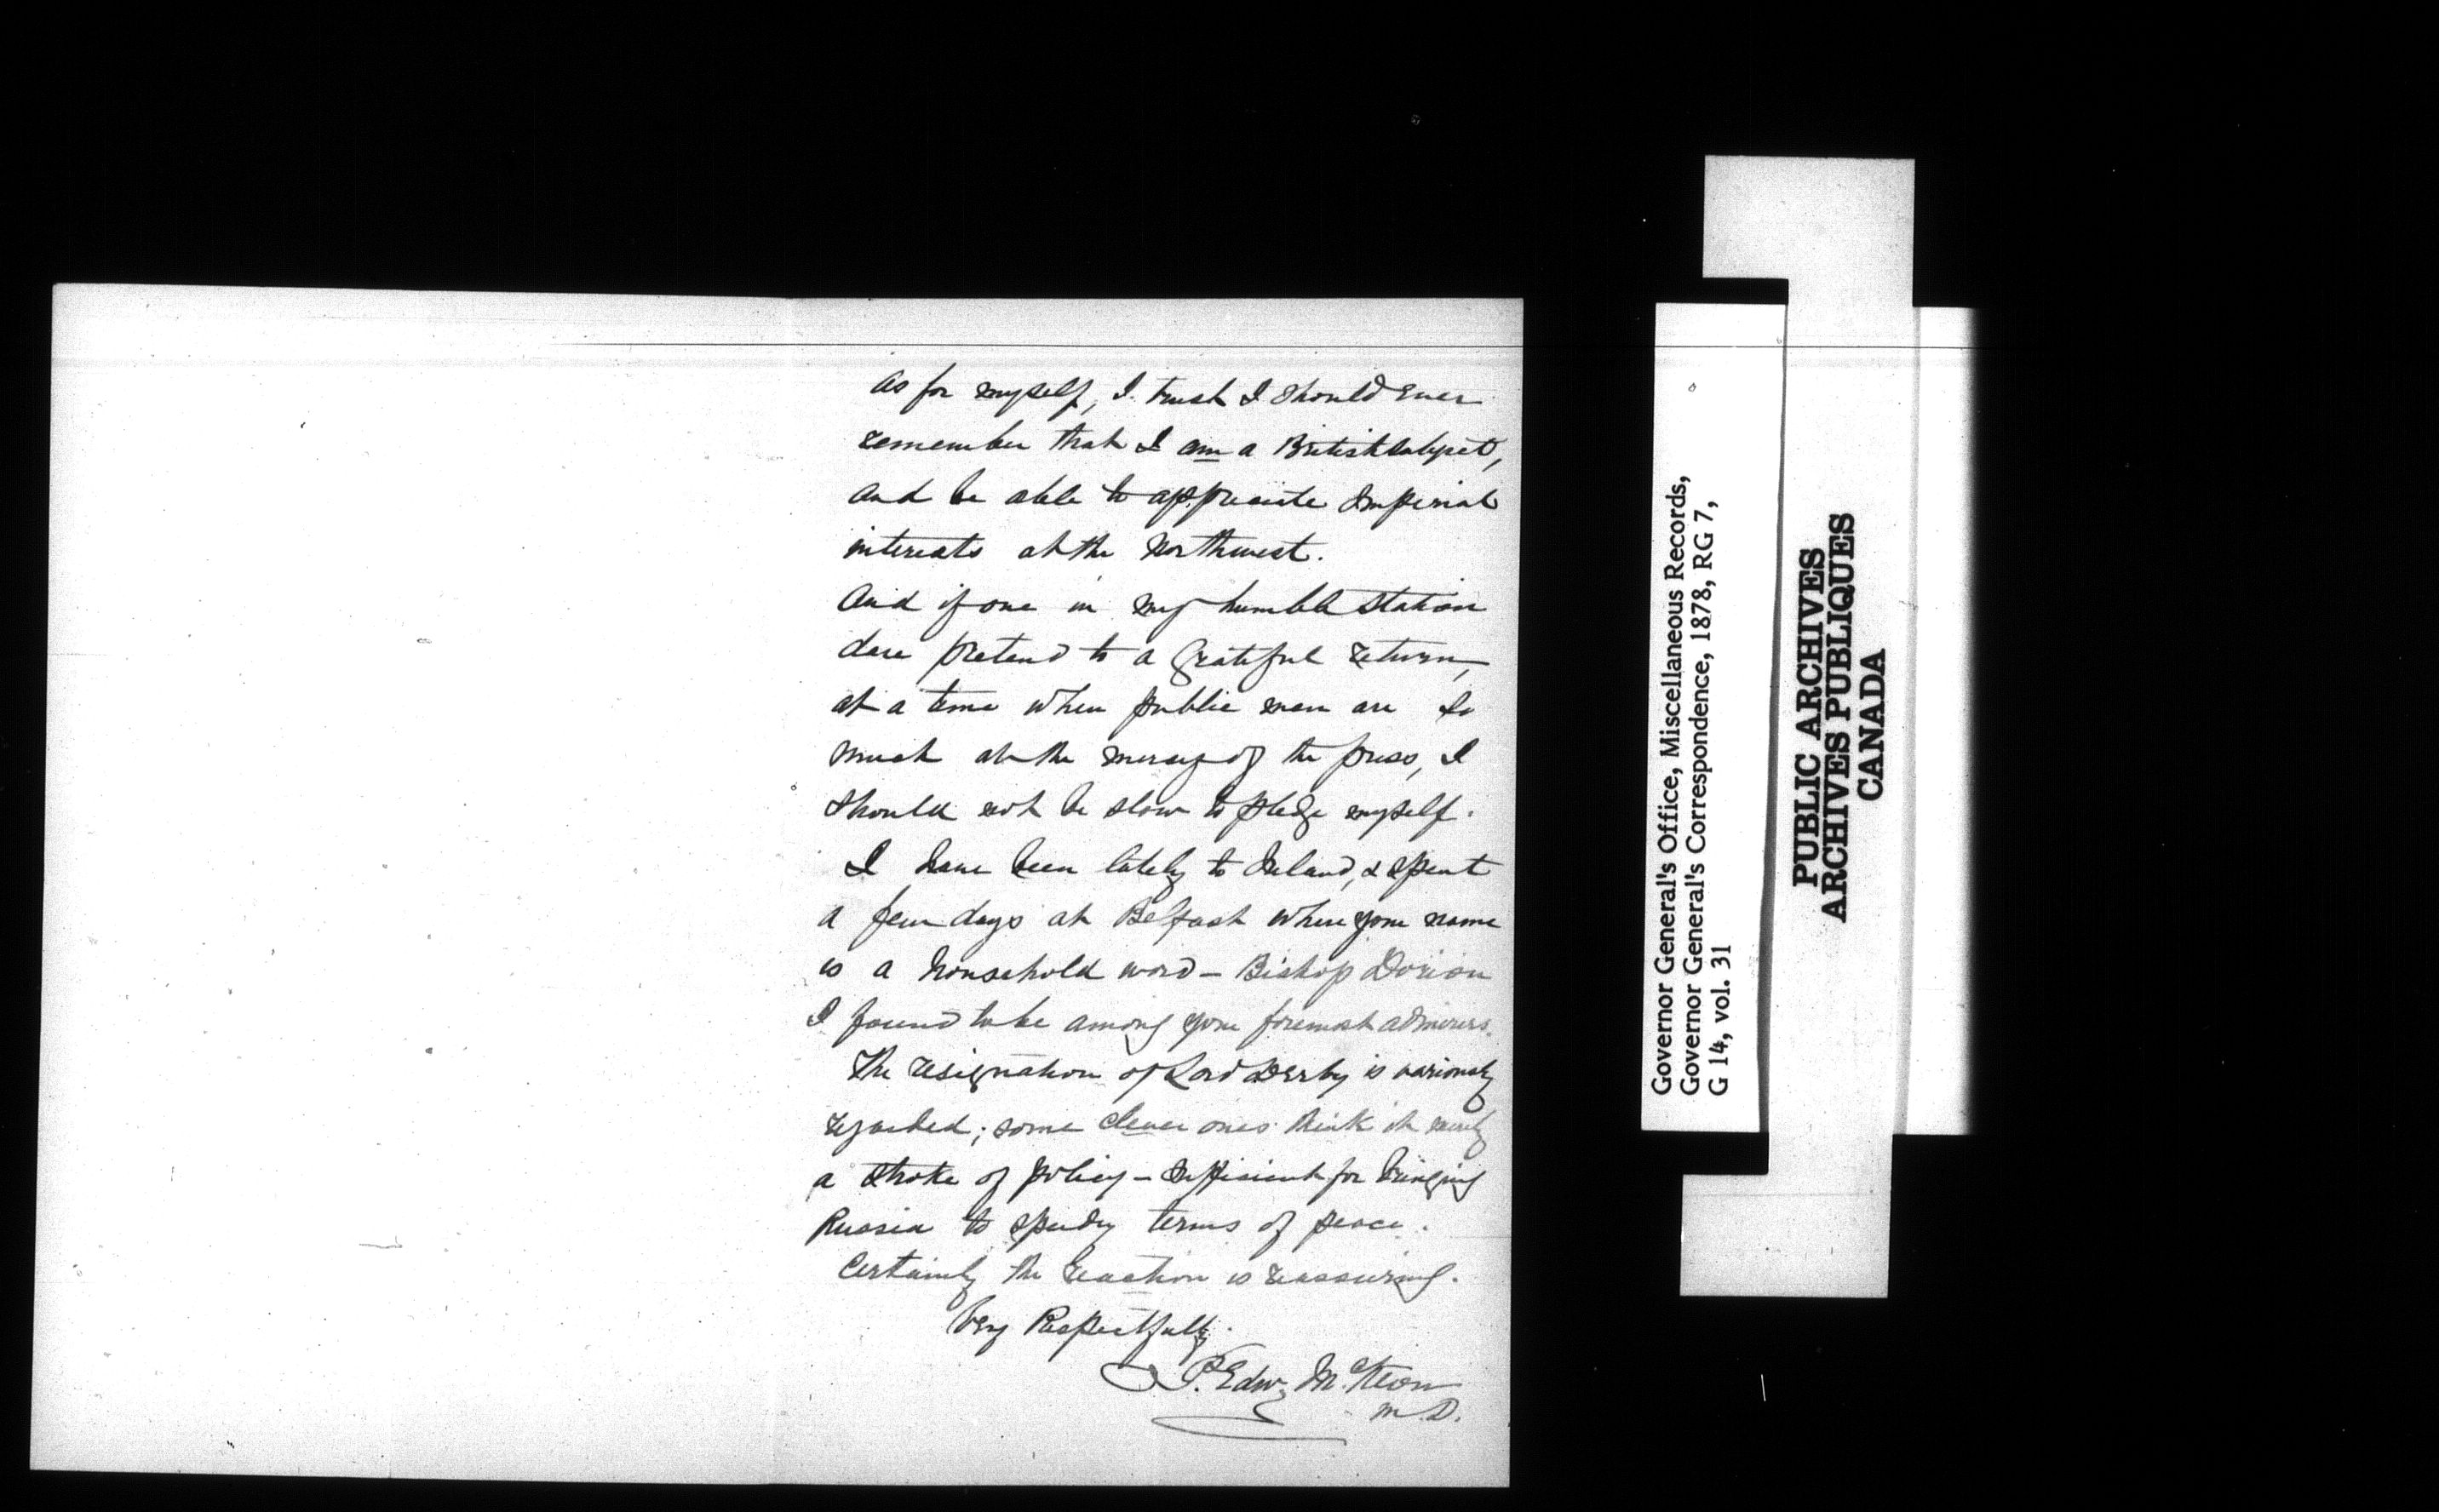 As for myself, I trust I should ever
remember that I am a British subject,
and be able to appreciate Imperial
interests at the Northwest.
And if one in my humble station
dare pretend to a grateful return,
at a time when public men are so
much at the mercy of the press, I
should not be slow to pledge myself.
I have been lately to Ireland, & spent
a few days at Belfast where your name
is a household word – Bishop Dorian
I found to be among your foremost admirers.
The resignation of Lord Derby is variously
regarded; some clever ones think it merely
a stroke of policy – sufficient for bringing
Russia to speedy terms of peace.
Certainly the reaction is reassuring.
Very Respectfully.
P. Edw. McKeon
M.D.
Governor General's Office, Miscellaneous Records,
Governor General's Correspondence, 1878, RG 7,
G 14, vol. 31
PUBLIC ARCHIVES
ARCHIVES PUBLIQUES
CANADA